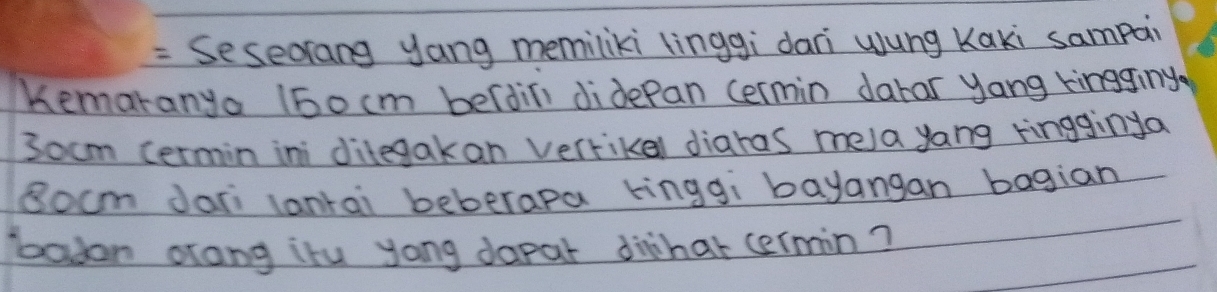 = Seseorang yang memiliki tinggi dari ujung kaki sampai
kematanya 150 cm berdiri didepan cermin datar yang tingginya
30cm cermin ini diletakan vertikal diatas meja yang tingginya
80cm dari lantai beberapa tinggi bayangan bagian
badan orang itu yang dapat dilihat cermin?